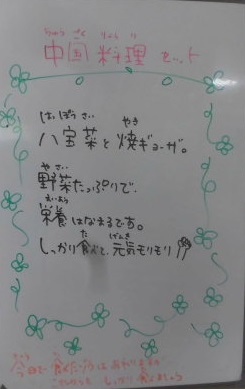 ちゅうごくりょうり
中国料理セット
はっぽうさい やき
八宝菜と焼ギョーザ。
やさい
野菜たっぷりで、
えいよう
栄養はなまるです。
た げんき
しっかり食べて、元気モリモリ
今日で食
しっかり食べましょう